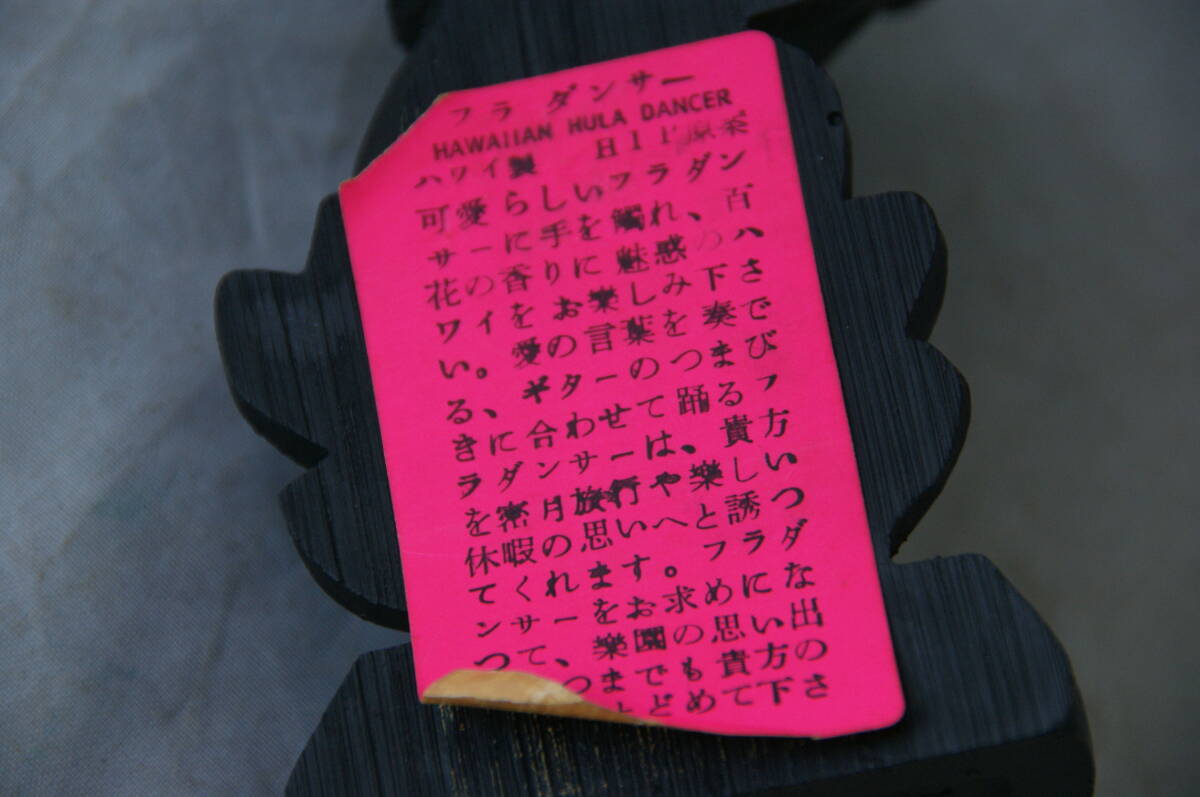 フラ ダンサー
HAWAIIAN HULA DANCER
ハワイ製 H11
可愛らしいフラダン
サーに手を觸れ、百
花の香りに魅惑のハ
ワイをお樂しみ下さ
い。愛の言葉を奏で
る、ギターのつまび
きに合わせて踊るフ
ラダンサーは、貴方
を密月旅行や樂しい
休暇の思いへと誘つ
てくれます。フラダ
ンサーをお求めにな
つて、樂園の思い出
つまでも貴方の
とどめて下さ